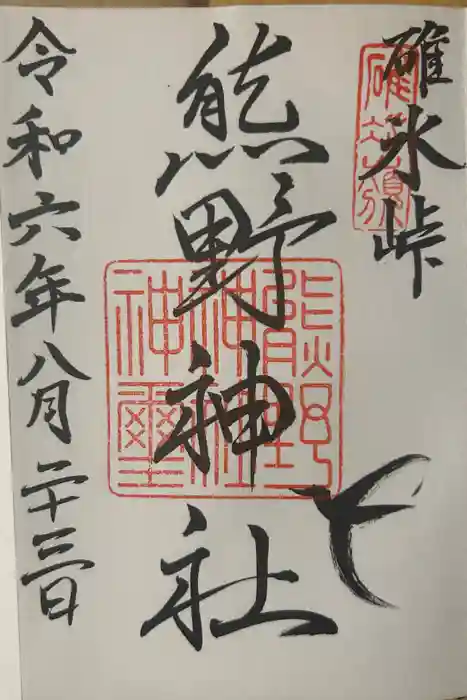 碓氷峠
碓氷嶺
熊野神社
熊野神社神璽
令和六年八月二十三日